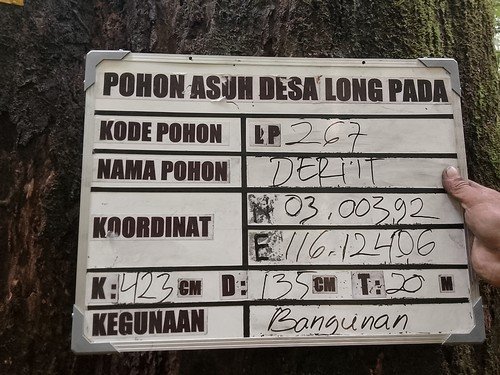 POHON ASUH DESA LONG PADA
KODE POHON LP 267
NAMA POHON DERIIT
KOORDINAT N 03.00392
E 116.12406
K: 423 CM D: 135 CM T: 20 M
KEGUNAAN Bangunan